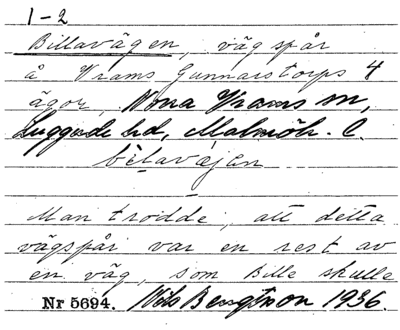 1-2
Billavägen, vägspår
å Vrams Gunnarstorps 4
ägor, Norra Vrams sn,
Luggude hd, Malmöh. l.
belavajan
Man trodde, att detta
vägspår var en rest av
en väg, som Bille skulle
Nr 5694. Nils Bengtsson 1936.